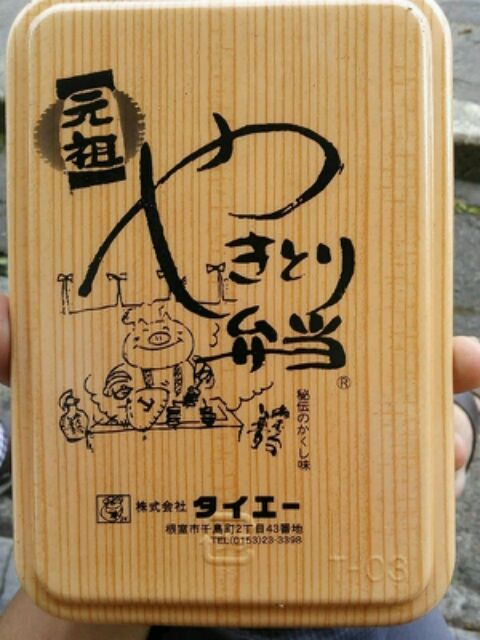 元祖
やきとり
弁当
®
秘伝のかくし味
株式会社 タイエー
根室市千島町2丁目43番地
TEL(0153)23-3398
TH-03